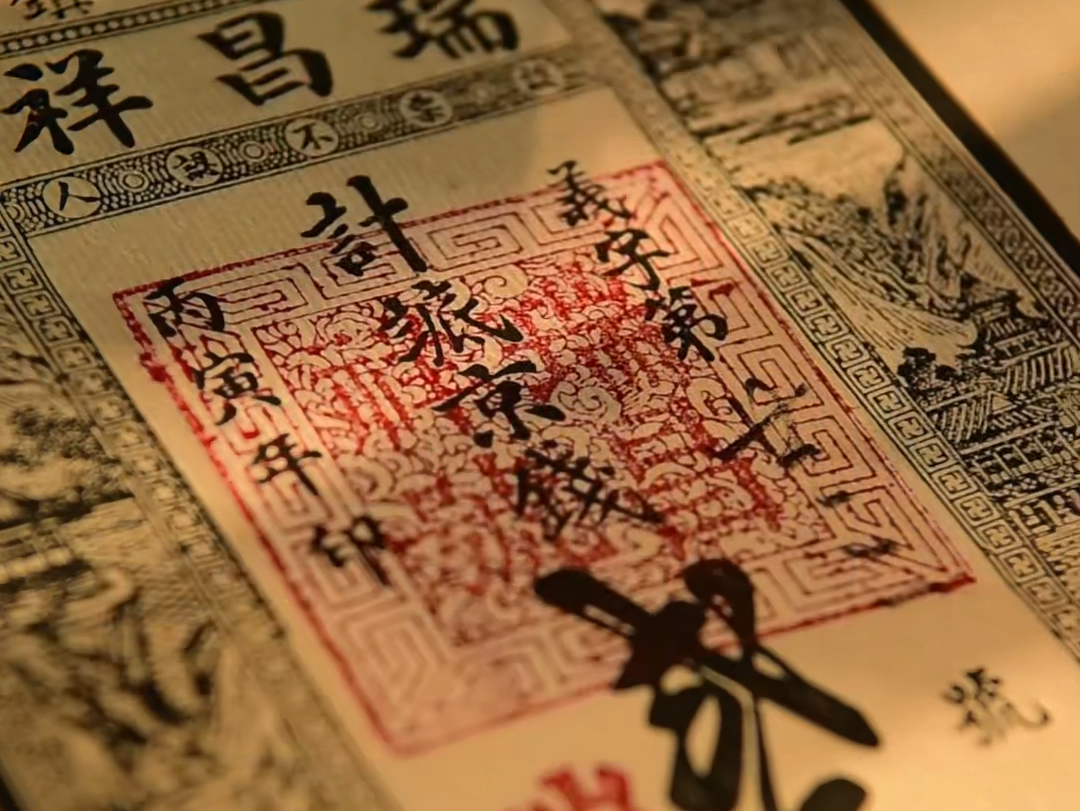 瑞昌祥
認票不認人
義字第
號
計
京錢
丙寅年印